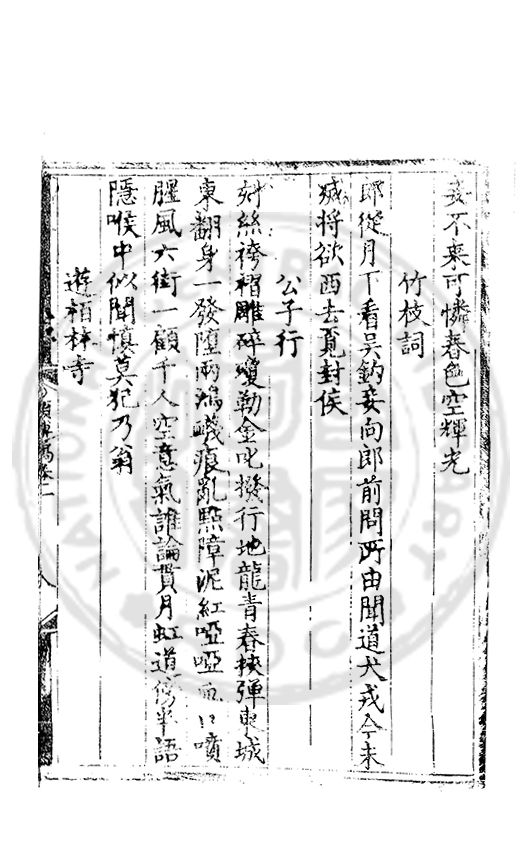 妾不来可憐春色空輝光
竹枝詞
郎從月下看吳鈎妾向郎前問所由聞道犬戎今未
滅将欲西去覓封侯
公子行
刻絲袴褶雕碎瓊勒金叱撥行地龍青春挾彈東城
東翻身一發墮兩鴻 痕亂點障泥紅啞啞 口噴
腥風六街一顧千人空意氣誰論貫月虹道傍半語
隱喉中似聞慎莫犯乃翁
遊栢林寺
稿卷一